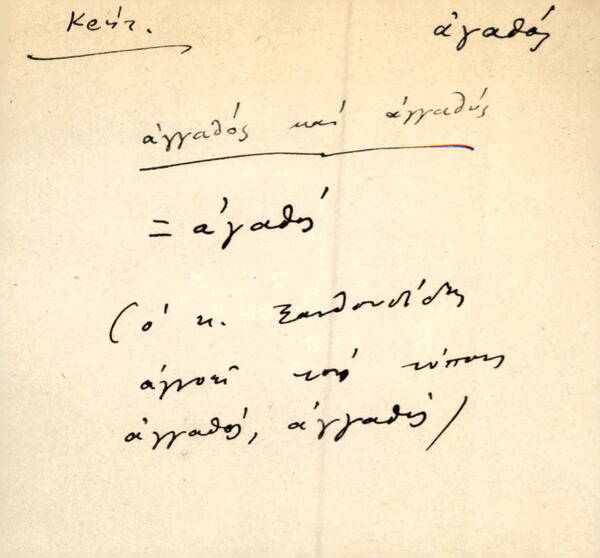 Κρήτ. ἀγαθός
ἀγγαθός καί ἀγγαθύς
= ἀγαθός
(ὁ κ. Ξανθουδίδης
ἀγνοεῖ τούς τύπους
ἀγγαθός, ἀγγαθύς)